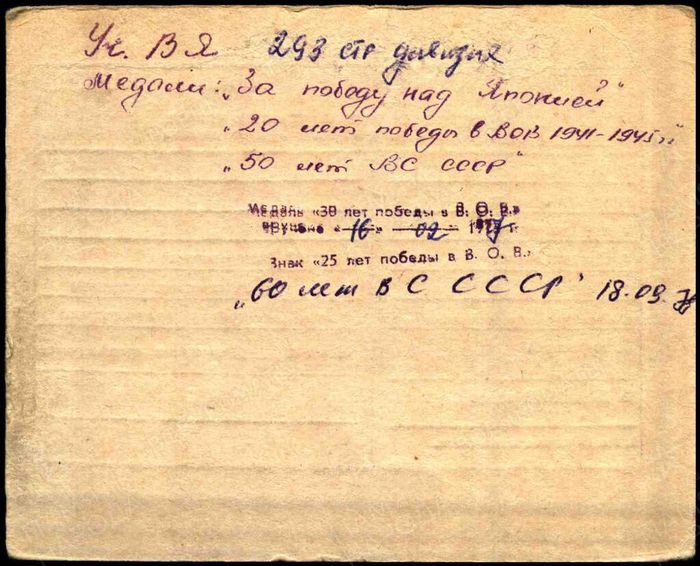 Уч. В Я 293 стр дивизия
Медали: „За победу над Японией"
„20 лет победы в ВОВ 1941-1945г"
„50 лет ВС СССР"
Медаль «30 лет победы в В. О. В.»
вручена «16» 02 197 г.
Знак «25 лет победы в В. О. В.»
„60 лет ВС СССР" 18.09.78